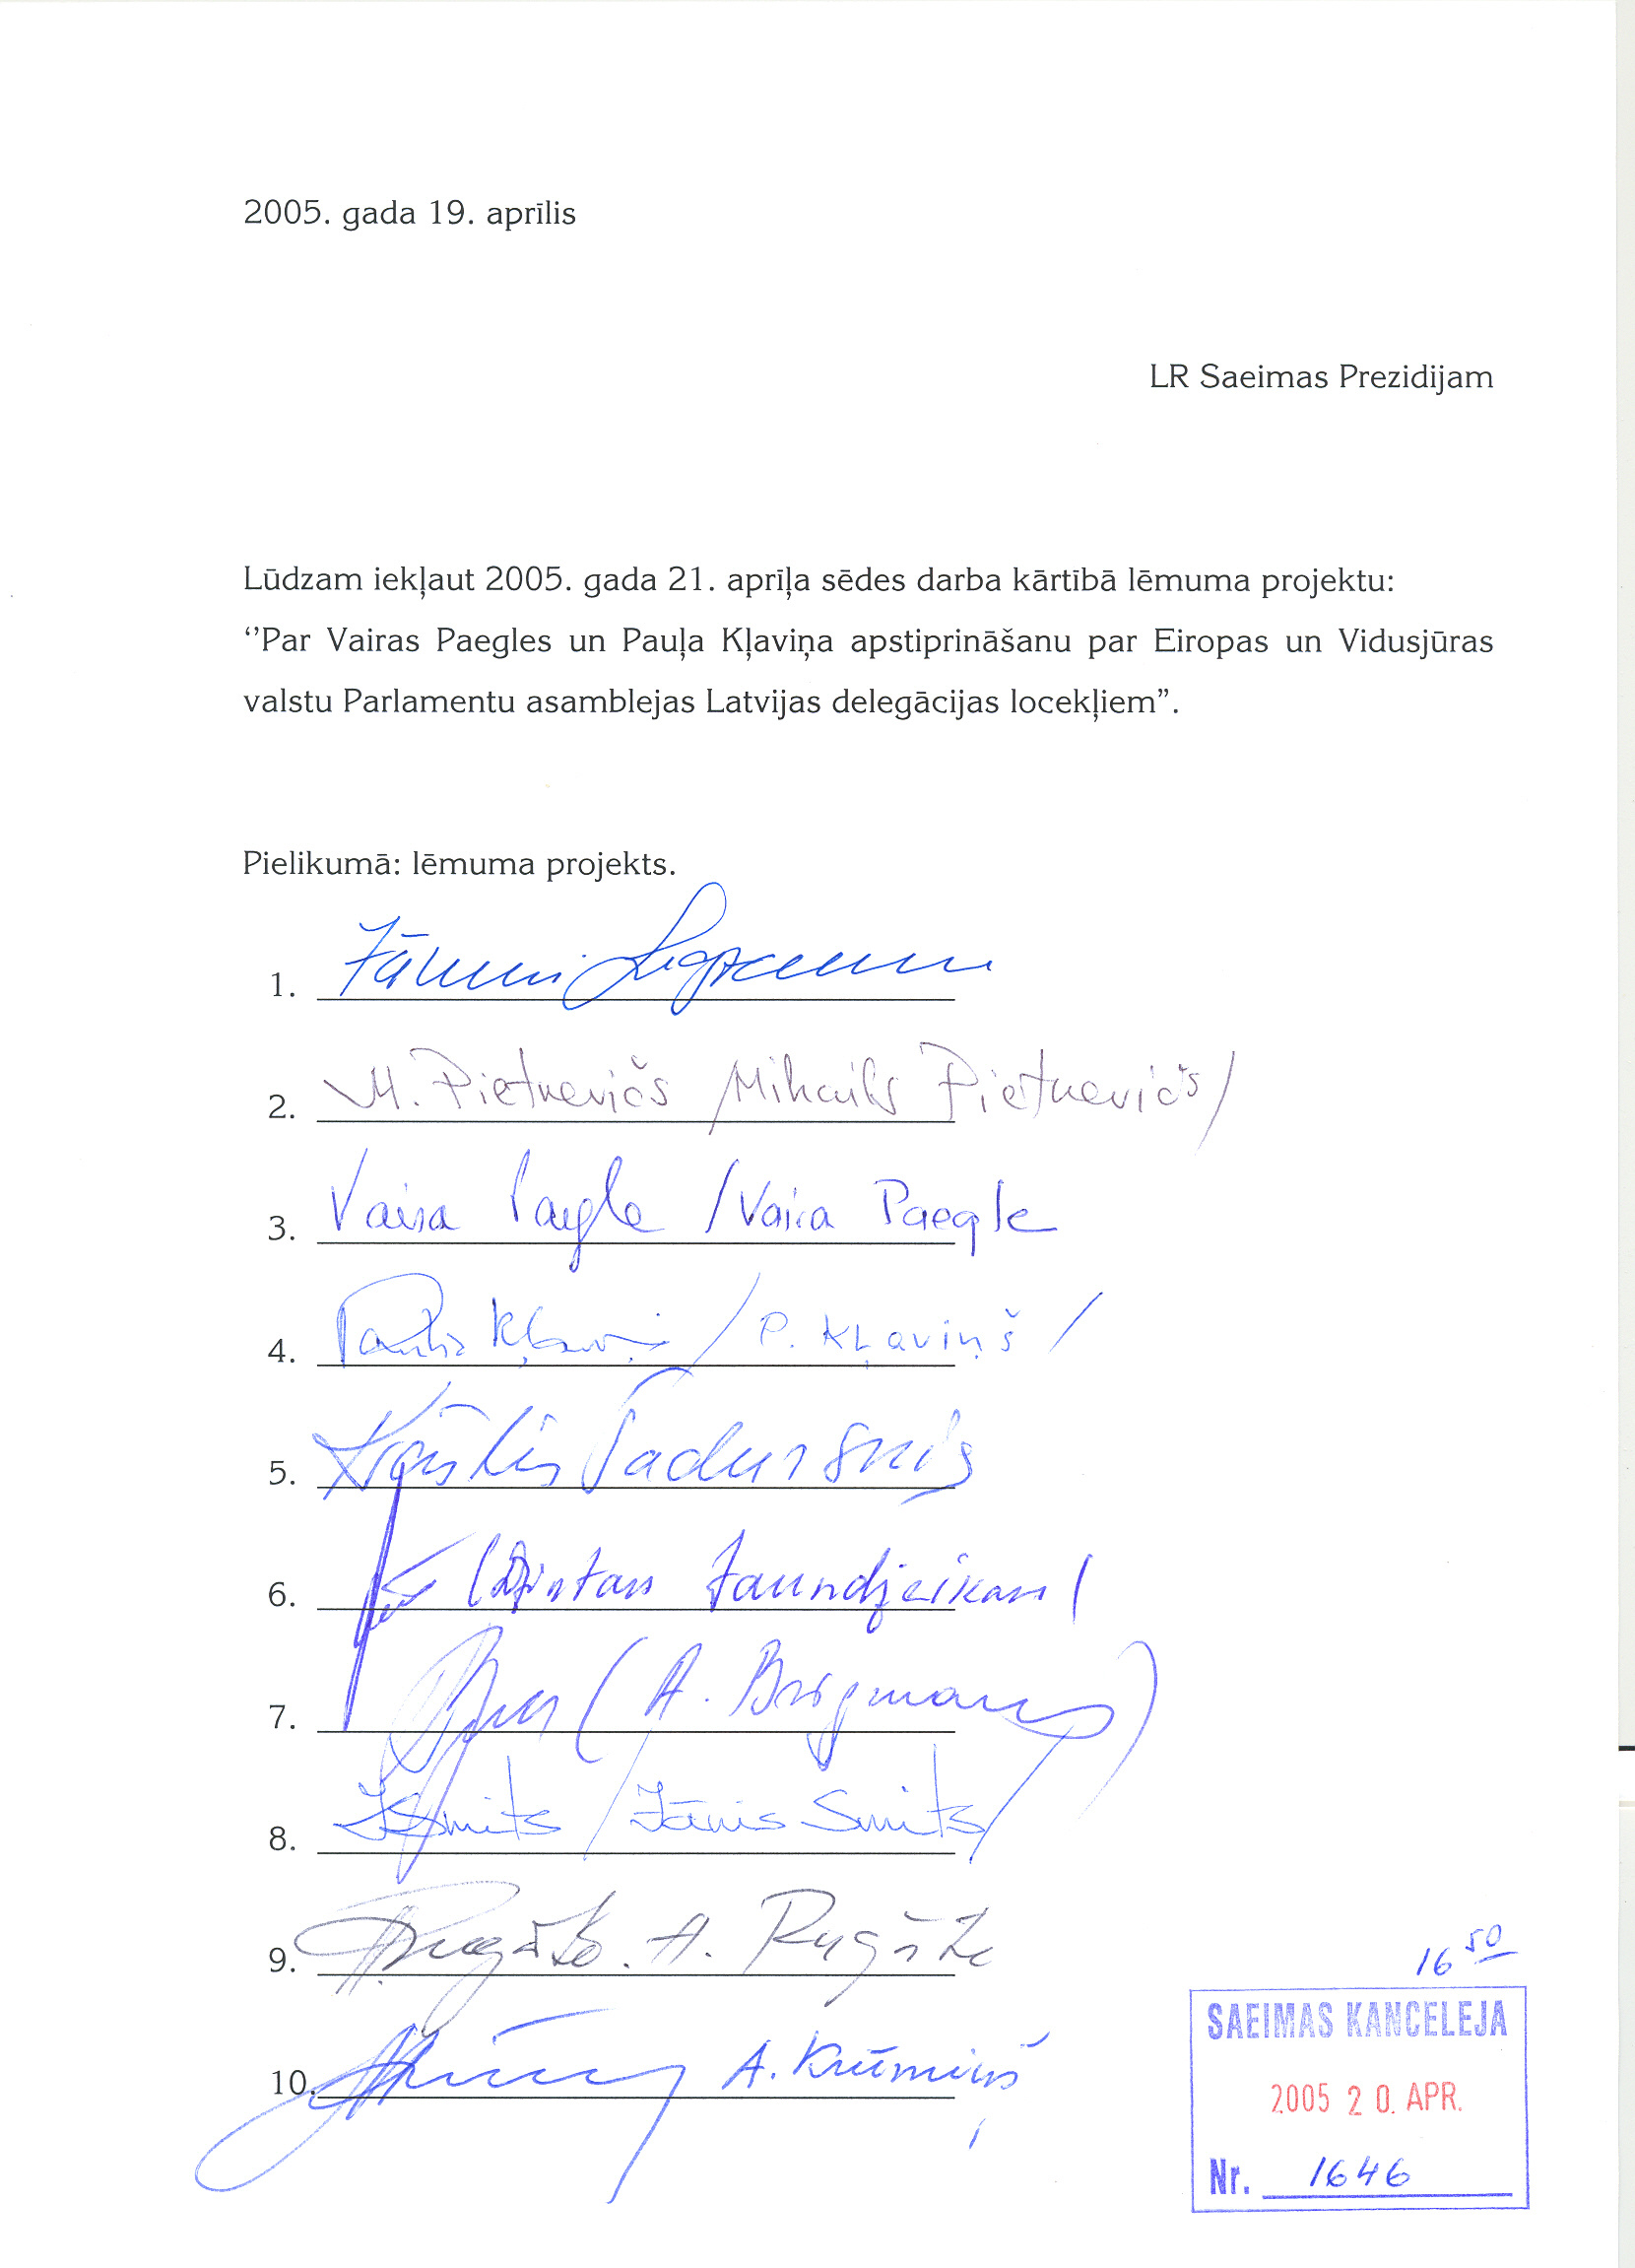 2005. gada 19. aprīlis
LR Saeimas Prezidijam
Lūdzam iekļaut 2005. gada 21. aprīļa sēdes darba kārtībā lēmuma projektu:
‘’Par Vairas Paegles un Pauļa Kļaviņa apstiprināšanu par Eiropas un Vidusjūras
valstu Parlamentu asamblejas Latvijas delegācijas locekļiem”.
Pielikumā: lēmuma projekts.
1.
2. M. Pietkevičs /Mihails Pietkevičs/
3. Vaira Paegle /Vaira Paegle
4. / P. Kļaviņš /
5.
6. (Dzintars Jaundžeikars)
7. (A. Brigmanis)
8. JSmits /Jānis Smits/
9. A.
10. A. Krūmiņš
16 50
SAEIMAS KANCELEJA
2005 20. APR.
Nr. 1646